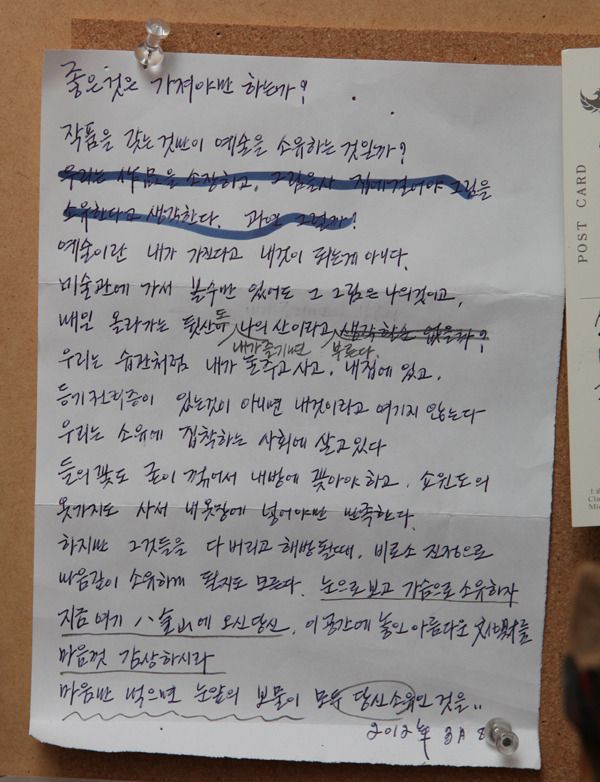 좋은것은 가져야만 하는가?
작품을 갖는것만이 예술을 소유하는 것일까?
우리는 作品을 소장하고, 그림을 사 집에 걸어야 그림을
소유한다고 생각한다. 과연 그럴까?
예술이란 내가 가진다고 내것이 되는게 아니다.
미술관에 가서 볼수만 있어도 그 그림은 나의것이고,
매일 올라가는 뒷산도 나의 산이라고 생각할순 없을까?
내가 즐기면 부른다.
우리는 습관처럼 내가 돈주고 사고, 내집에 있고,
등기권리증이 있는것이 아니면 내것이라고 여기지 않는다
우리는 소유에 집착하는 사회에 살고있다
들의 꽃도 굳이 꺾어서 내방에 꽂아야 하고, 쇼윈도의
옷가지도 사서 내옷장에 넣어야만 만족한다.
하지만 그것들을 다 버리고 해방될때, 비로소 진정으로
마음깊이 소유하게 될지도 모른다. 눈으로 보고 가슴으로 소유하자
지금 여기 八金山에 오신 당신, 이 공간에 놓인 아름다운
마음껏 감상하시라
마음만 먹으면 눈앞의 보물이 모두 당신소유인 것을..
2012年 3月 8
POST CARD